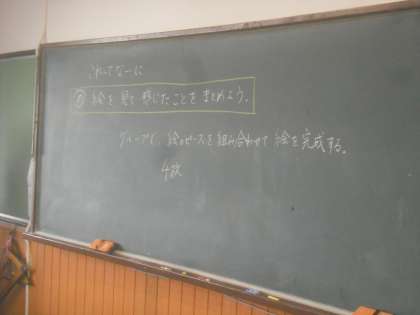 これってなーに
め 絵を見て感じたことをまとめよう。
グループで、絵のピースを組み合わせて絵を完成する。
4枚